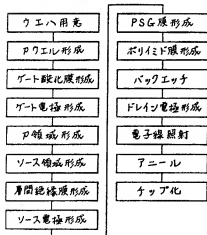 ウエハ用意
Pウエル形成
ゲート酸化膜形成
ゲート電極形成
P領域形成
ソース領域形成
層間絶縁膜形成
ソース電極形成
PSG膜形成
ポリイミド膜形成
バックエッチ
ドレイン電極形成
電子線照射
アニール
チップ化